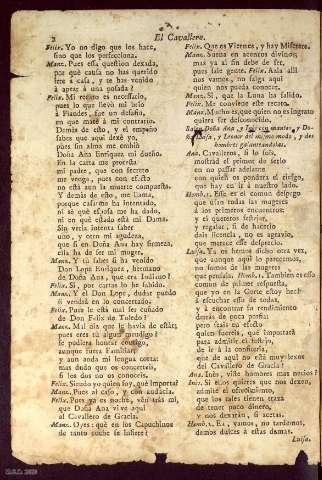 2 El Cavallero.
Felix. Yo no digo que los hace,
sino que los perfecciona.
Manz. Pues essa question dexada,
por qué causa no has querido
irte à casa, y te has venido
à apear à una posada?
Felix. Mi recato es necessario,
pues lo que llevò mi brio
à Flandes, fue un desafio,
en que maté à mi contrario.
Demàs de esto, y el empeño
sabes que aqui dexè yo,
pues sin alma me embiò
Doña Ana Enriquez mi dueño.
En la carta me proesta
mi padre, que con secreto
me venga, pues con efecto
no està aun la muerte compuesta.
Y demàs de esto, me llama,
porque casarme ha intentado,
ni sè què esposa me ha dado,
ni en què estado està mi dama.
Sin verla intenta saber
uno, y otro mi agudeza,
que si en Doña Ana hay firmeza,
ella ha de ser mi muger.
Manz. Y tu sabes si ha venido
Don Lope Enriquez, hermano
de Doña Ana, que era Indiano?
Felix. Sì, por cartas lo he sabido.
Manz. Y el Don Lope, dudar puedo
si vendrà en lo concertado.
Felix. Pues le està mal ser cuñado
de Don Felix de Toledo?
Manz. Mal dia que le havia de estàr,
pues eres tù algun mendigo?
se pudiera honrar contigo,
aunque fuera Familiar:
y aun anda mi lengua corta:
mas dudo que os concerteis,
si los dos no os conoceis.
Felix. Siendo yo quien soy, què importa?
Manz. Pues al caso, y con audacia.
Felix. Pues ya es noche, ven tràs mi,
que Doña Ana vive aqui
al Cavallero de Gracia.
Manz. Oyes: què en los Capuchinos
de tanto coche se infiere?
Felix. Que es Viernes, y hay Miserere.
Manz. Suena en acentos divinos;
mas ya al fin debe de ser,
pues sale gente. Felix. Azia allì
nos vamos, no salga aqui
quien nos pueda conocer.
Manz. Sì, que la Luna ha salido.
Felix. Me conviene este recato.
Manz. Mucho es, que quien no es ingrato
quiera ser desconocido.
Salen Doña Ana, y Inès con mantos, y Doña
Luisa, y Leonor del mismo modo, y dos
hombres galanteandolas.
Ana. Cavalleros, si lo sois,
mostrad el primor de serlo
en no passar adelante,
con quien es ponderà el riesgo,
que hay en ir à nuestro lado.
Homb. 1. Esse es el comun despego
que usan todas las mugeres
à los primeros encuentros;
y el quereros festejar,
y regalar, si de haceros
dais licencia, no es agravio,
que merece esse desprecio.
Luisa. Ya os hemos dicho otra vez,
que aunque aqui lo parecemos,
no somos de las mugeres
que pensais. Homb. 1. Tambien es esso
comun de primer respuesta,
que yo en la Corte estoy hecho
à escuchar esso de todas,
y à encontrar su rendimiento
detràs de poca porfia;
pero seais en efecto
quien fuereis, què importarà
para admitir el festejo,
de ir à la confiteria,
que de aqui no està muy lexos
del Cavallero de Gracia?
Ana. Inès, viste hombres mas necios?
Ines. Si el os quieres que nos dexen,
admite el ofrecimiento,
que los tales tienen traza
de tener poco dinero,
y nos dexaràn, si acetas.
Homb. 1. Ea, vamos, no tardemos,
demos dulces à estas damas.
Luisa.